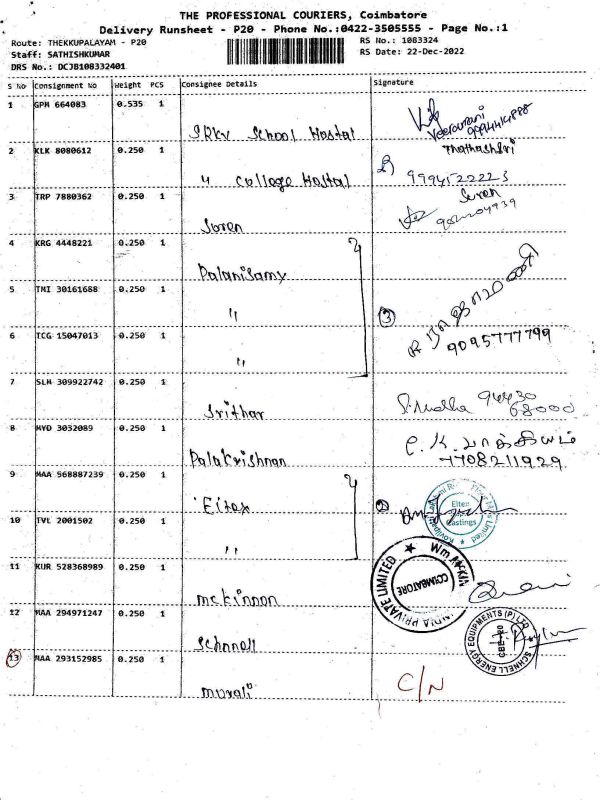 THE PROFESSIONAL COURIERS, Coimbatore
Delivery Runsheet - P20 - Phone No.:0422-3505555 - Page No.:1
Route: THEKKUPALAYAM - P20
Staff: SATHISHKUMAR
DRS No.: DCJB108332401
RS No.: 1083324
RS Date: 22-Dec-2022
S No Consignment No Weight PCS Consignee Details Signature
1 GPM 664083 0.535 1
SRKV School Hostal
Veeramani
9994414888
2 KLK 8080612 0.250 1
" College Hostal
9994522223
3 TRP 7880362 0.250 1
Suren
Suren
4 KRG 4448221 0.250 1
Palanisamy
5 TMI 30161688 0.250 1
"
3
9095777799
6 TCG 15047013 0.250 1
"
7 SLM 309922742 0.250 1
Srithar
94430
68000
8 MYD 3032089 0.250 1
Palakrishnan
7708211929
9 MAA 568887239 0.250 1
Eltex
2
Eltex
Castings
10 TVL 2001502 0.250 1
"
11 KUR 528368989 0.250 1
mckinnon
INDIA PRIVATE LIMITED
COIMBATORE
12 MAA 294971247 0.250 1
Schnnell
SCHNELL ENERGY EQUIPMENTS (P) LTD
13 MAA 293152985 0.250 1
murali
C/N